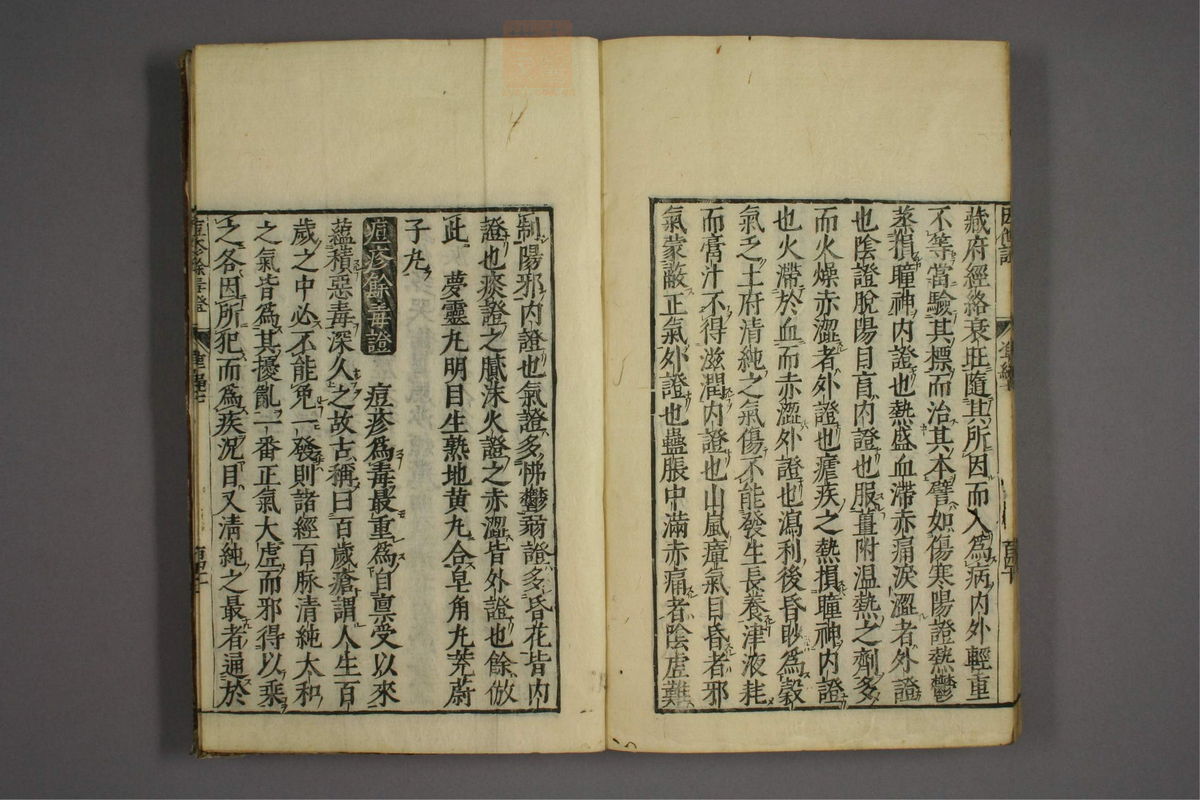 藏府經絡衰旺隨其所因而入爲病內外輕重
不等當驗其標而治其本譬如傷寒陽證熱鬱
蒸損瞳神內證也熱盛血滯赤痛淚澀者外證
也陰證脫陽目盲內證也服薑附溫熱之劑多
而火燥赤澀者外證也瘧疾之熱損瞳神內證
也火滯於血而赤澀外證也瀉利後昏眇爲穀
氣乏土府清純之氣傷不能發生長養津液耗
而膏汁不得滋潤內證也山嵐瘴氣目昏者邪
氣蒙蔽正氣外證也蠱脹中滿赤痛者陰虛難
制陽邪內證也氣證多怫鬱弱證多昏花皆內
證也痰證之膩沫火證之赤澀皆外證也餘倣
此 夢靈丸明目生熟地黃丸合皂角丸茺蔚
子丸
痘疹餘毒證 痘疹爲毒最重爲自禀受以來
蘊積惡毒深久之故古稱曰百歲瘡謂人生百
歲之中必不能免一發則諸經百脉清純太和
之氣皆爲其擾亂一番正氣大虛而邪得以乘
之各因所犯而爲疾況目又清純之最者通於
痘疹餘毒證